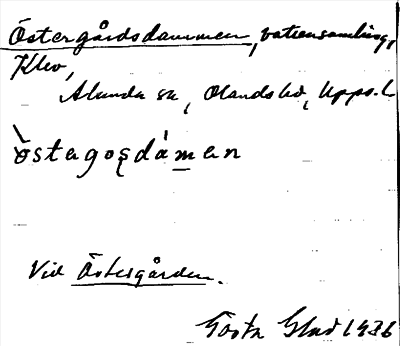 Östergårdsdammen, vattensamling,
Klev,
Alunda sn, Olands hd, Upps. l.
östagoṣdámen
Vid Östergården.
Gösta Glad 1936